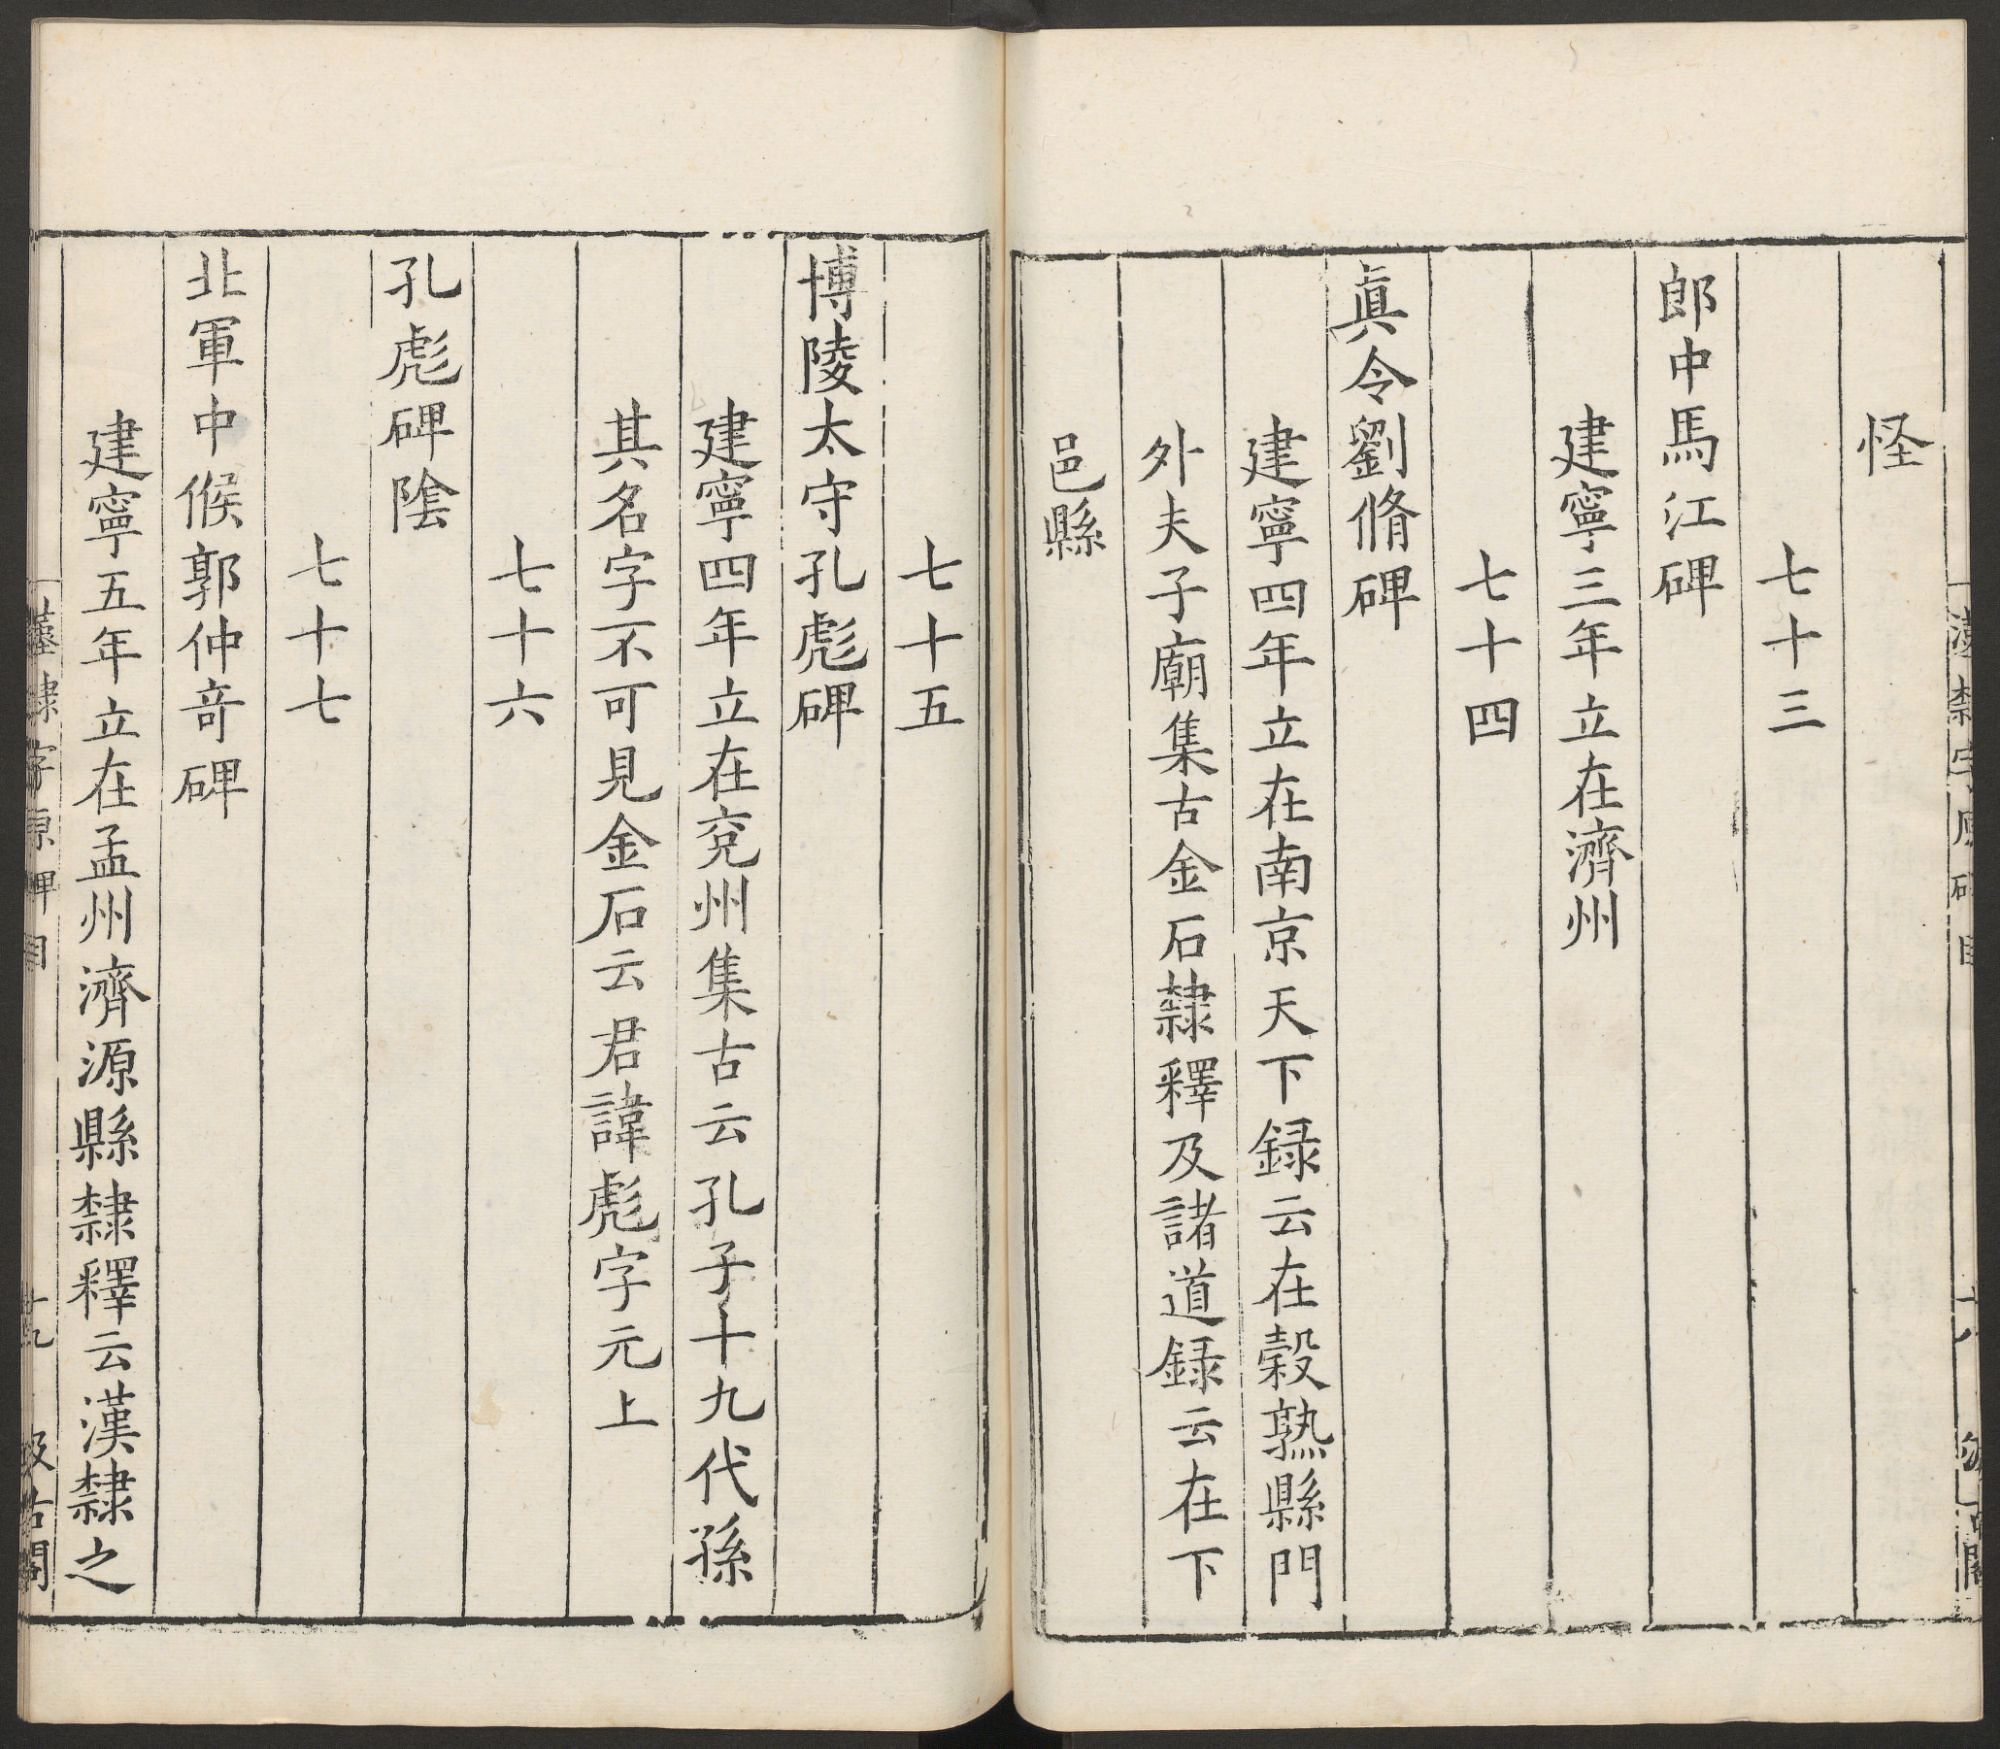 怪
七十三
郎中馬江碑
建寧三年立在濟州
七十四
眞令劉脩碑
建寧四年立在南京天下録云在穀熟縣門
外夫子廟集古金石隸釋及諸道録云在下
邑縣
七十五
博陵太守孔彪碑
建寧四年立在兖州集古云孔子十九代孫
其名字不可見金石云君諱彪字元上
七十六
孔彪碑陰
七十七
北軍中候郭仲竒碑
建寧五年立在孟州濟源縣隸釋云漢隸之
漢隸字原碑目
十九
汲古閣